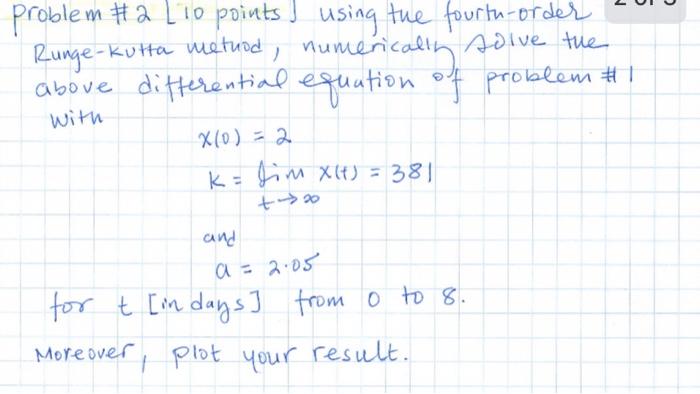 Problem #2 [10 points] using the fourth-order
Runge-Kutta method, numerically solve the
above differential equation of problem #1
with
x(0) = 2
k = lim x(t) = 381
t→∞
and
a = 2.05
for t [in days] from 0 to 8.
Moreover, plot your result.